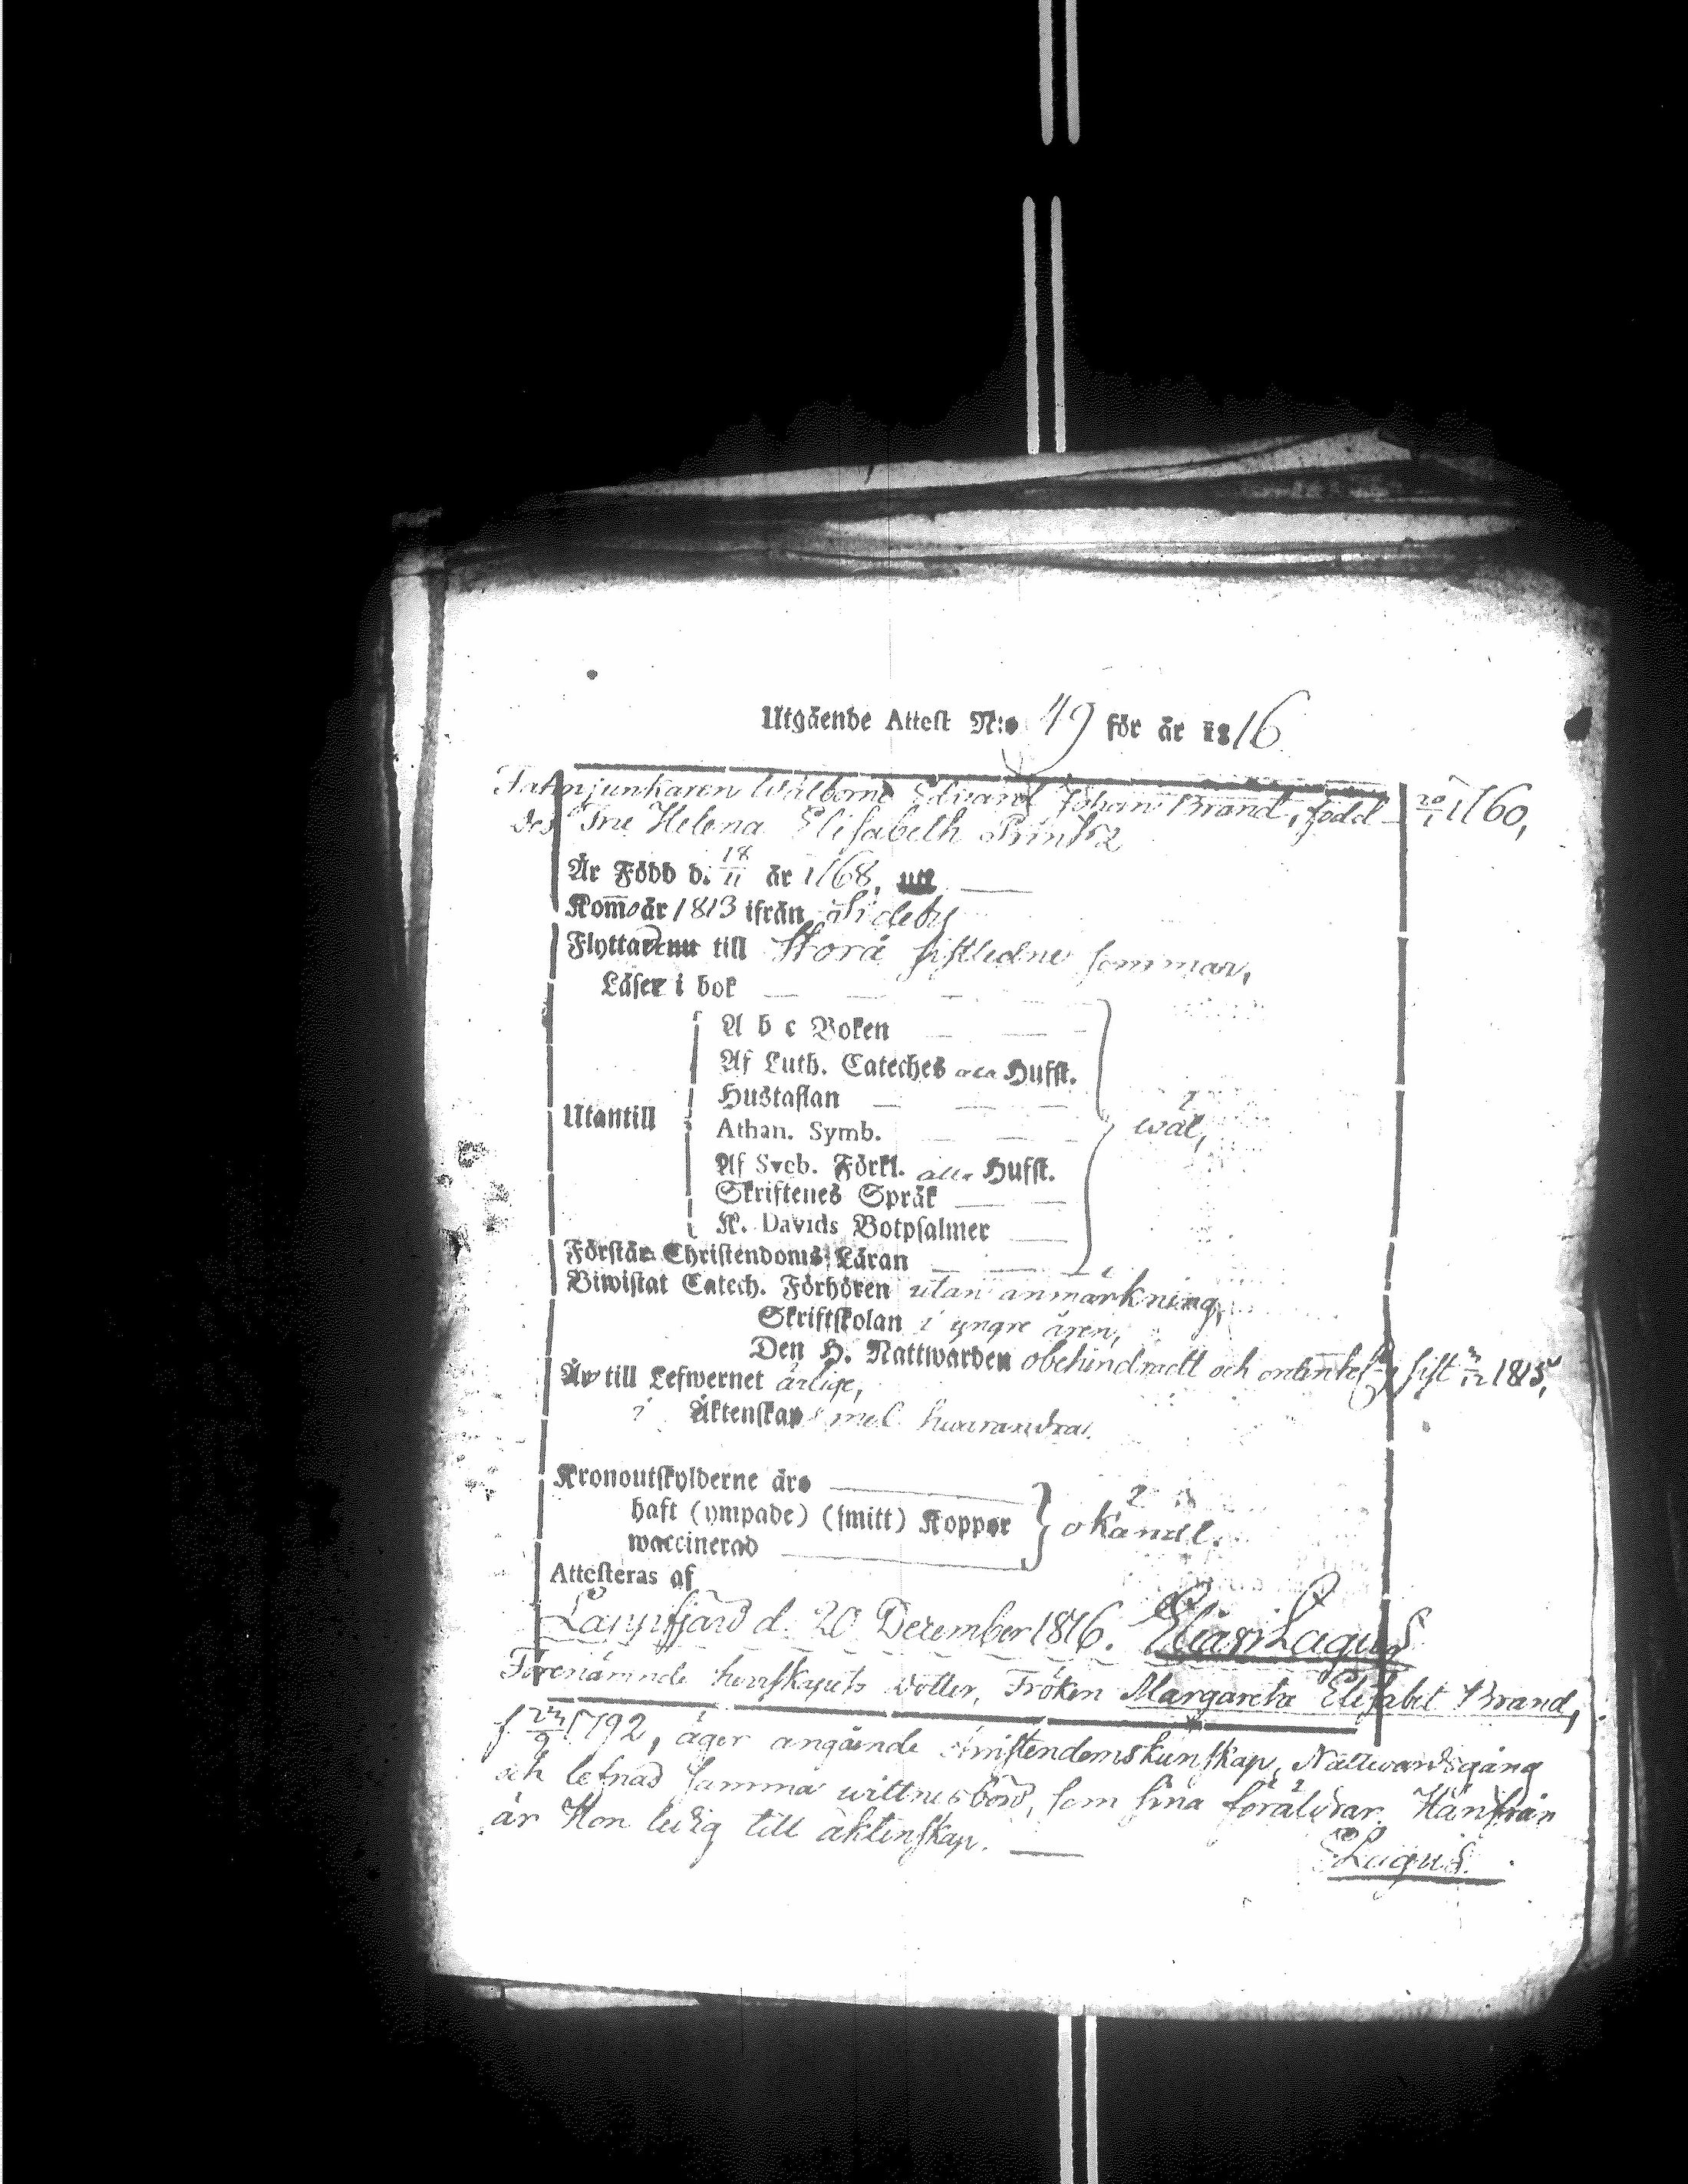 Utgående Attest N:o 49 för år 1816
Fahnjunkaren Wälborne Eduard Johan Brand, född 20/1 1760,
des Fru Helena Elisabeth Printz
Är Född d. 18/11 år 1768,
Kom år 1813 ifrån Sideby
Flyttade till Storå sistledne sommar,
Läser i bok
A b c Boken
Af Luth. Cateches alla Hufst.
Hustaflan
Utantill
Athan. Symb.
wäl,
Af Sveb. Förkl. alla Hufst.
Skriftenes Språk
K. Davids Botpsalmer
Förstår Christendoms Läran
Biwistat Catech. Förhören utan anmärkning,
Skriftskolan i yngre åren,
Den H. Nattwarden obehindradt och sist 1815,
Är till Lefwernet ärlige,
i Äktenskap med hwarandra.
Kronoutskylderne äro
haft (ympade) (smitt) Koppor
okändt.
waccinerad
Attesteras af
Lappfjärd d. 20 December 1816. Elias Lagus
Förenämnde herrskapets dotter, Fröken Margareta Elisabet Brand,
f 1792, äger angående Christendomskunskap, Nattwardsgång
och lefnad samma wittnesbörd, som sina föräldrar. Härifrån
är Hon ledig till äktenskap.
E Lagus.